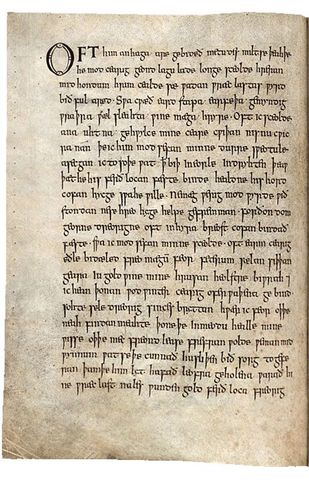 OFT him anhaga are gebideð metudes miltse þeah þe
he mod cearig geond lagu lade longe sceolde hreran
mid hondum hrim cealde sæ wadan wræc lastas wyrd
bið ful aræd. Swa cwæð eard stapa earfeþa gemyndig
wraþra wæl sleahta wine mæga hryre. Oft ic sceolde
ana uhtna gehwylce mine ceare cwiþan nis nu cwic
ra nan þe ic him mod sefan minne durre sweotule
asecgan ic to soþe wat þæt biþ in eorle indryhten þeaw
þæt he his ferð locan fæste binde healdne his hord
cofan hycge swa he wille. Ne mæg werig mod wyrde wið
stondan ne se hreo hyge helpe gefremman. forðon dom
georne dreorigne oft in hyra breost cofan bindað
fæste. swa ic mod sefan minne sceolde. oft earm cearig
eðle bidæled freo mægum feor feterum sælan siþþan
geara iu gold wine mine hrusan heolstre biwrah ⁊
ic hean þonan wod winter cearig ofer waþena gebind
sohte sele dreorig sinces bryttan hwær ic feor oþþe
neah findan meahte þone þe in meodu healle mine
wisse oþþe mec freond lease frefran wolde weman mid
wynnum wat se þe cunnað hu sliþen bið sorg to gefe
ran þam þe him lyt hafað leofra geholena warað hi
ne wræc last nales wunden gold ferð loca freorig